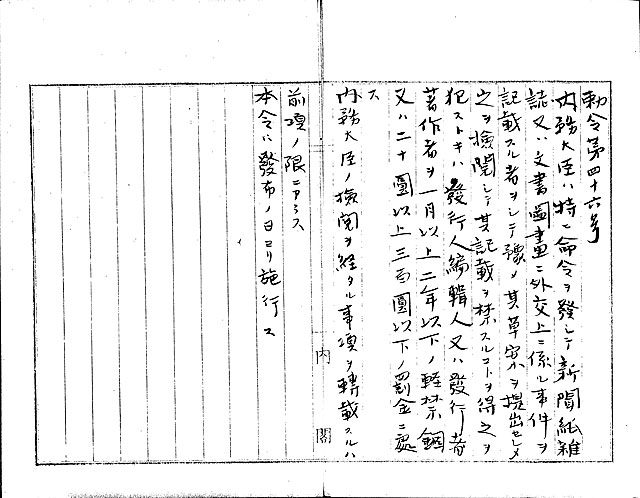 勅令第四十六号
内務大臣ハ特ニ命令ヲ發シテ新聞紙雑
誌又ハ文書圖畫ニ外交上ニ係ル事件ヲ
記載スル者ヲシテ豫メ其草案ヲ提出セシメ
之ヲ檢閲シテ其記載ヲ禁スルコトヲ得之ヲ
犯ストキハ發行人編輯人又ハ發行者
著作者ヲ一月以上二年以下ノ軽禁錮
又ハ二十圓以上三百圓以下ノ罰金ニ處
ス
内務大臣ノ檢閲ヲ経タル事項ヲ轉載スルハ
前項ノ限ニアラス
本令ハ發布ノ日ヨリ施行ス
内閣